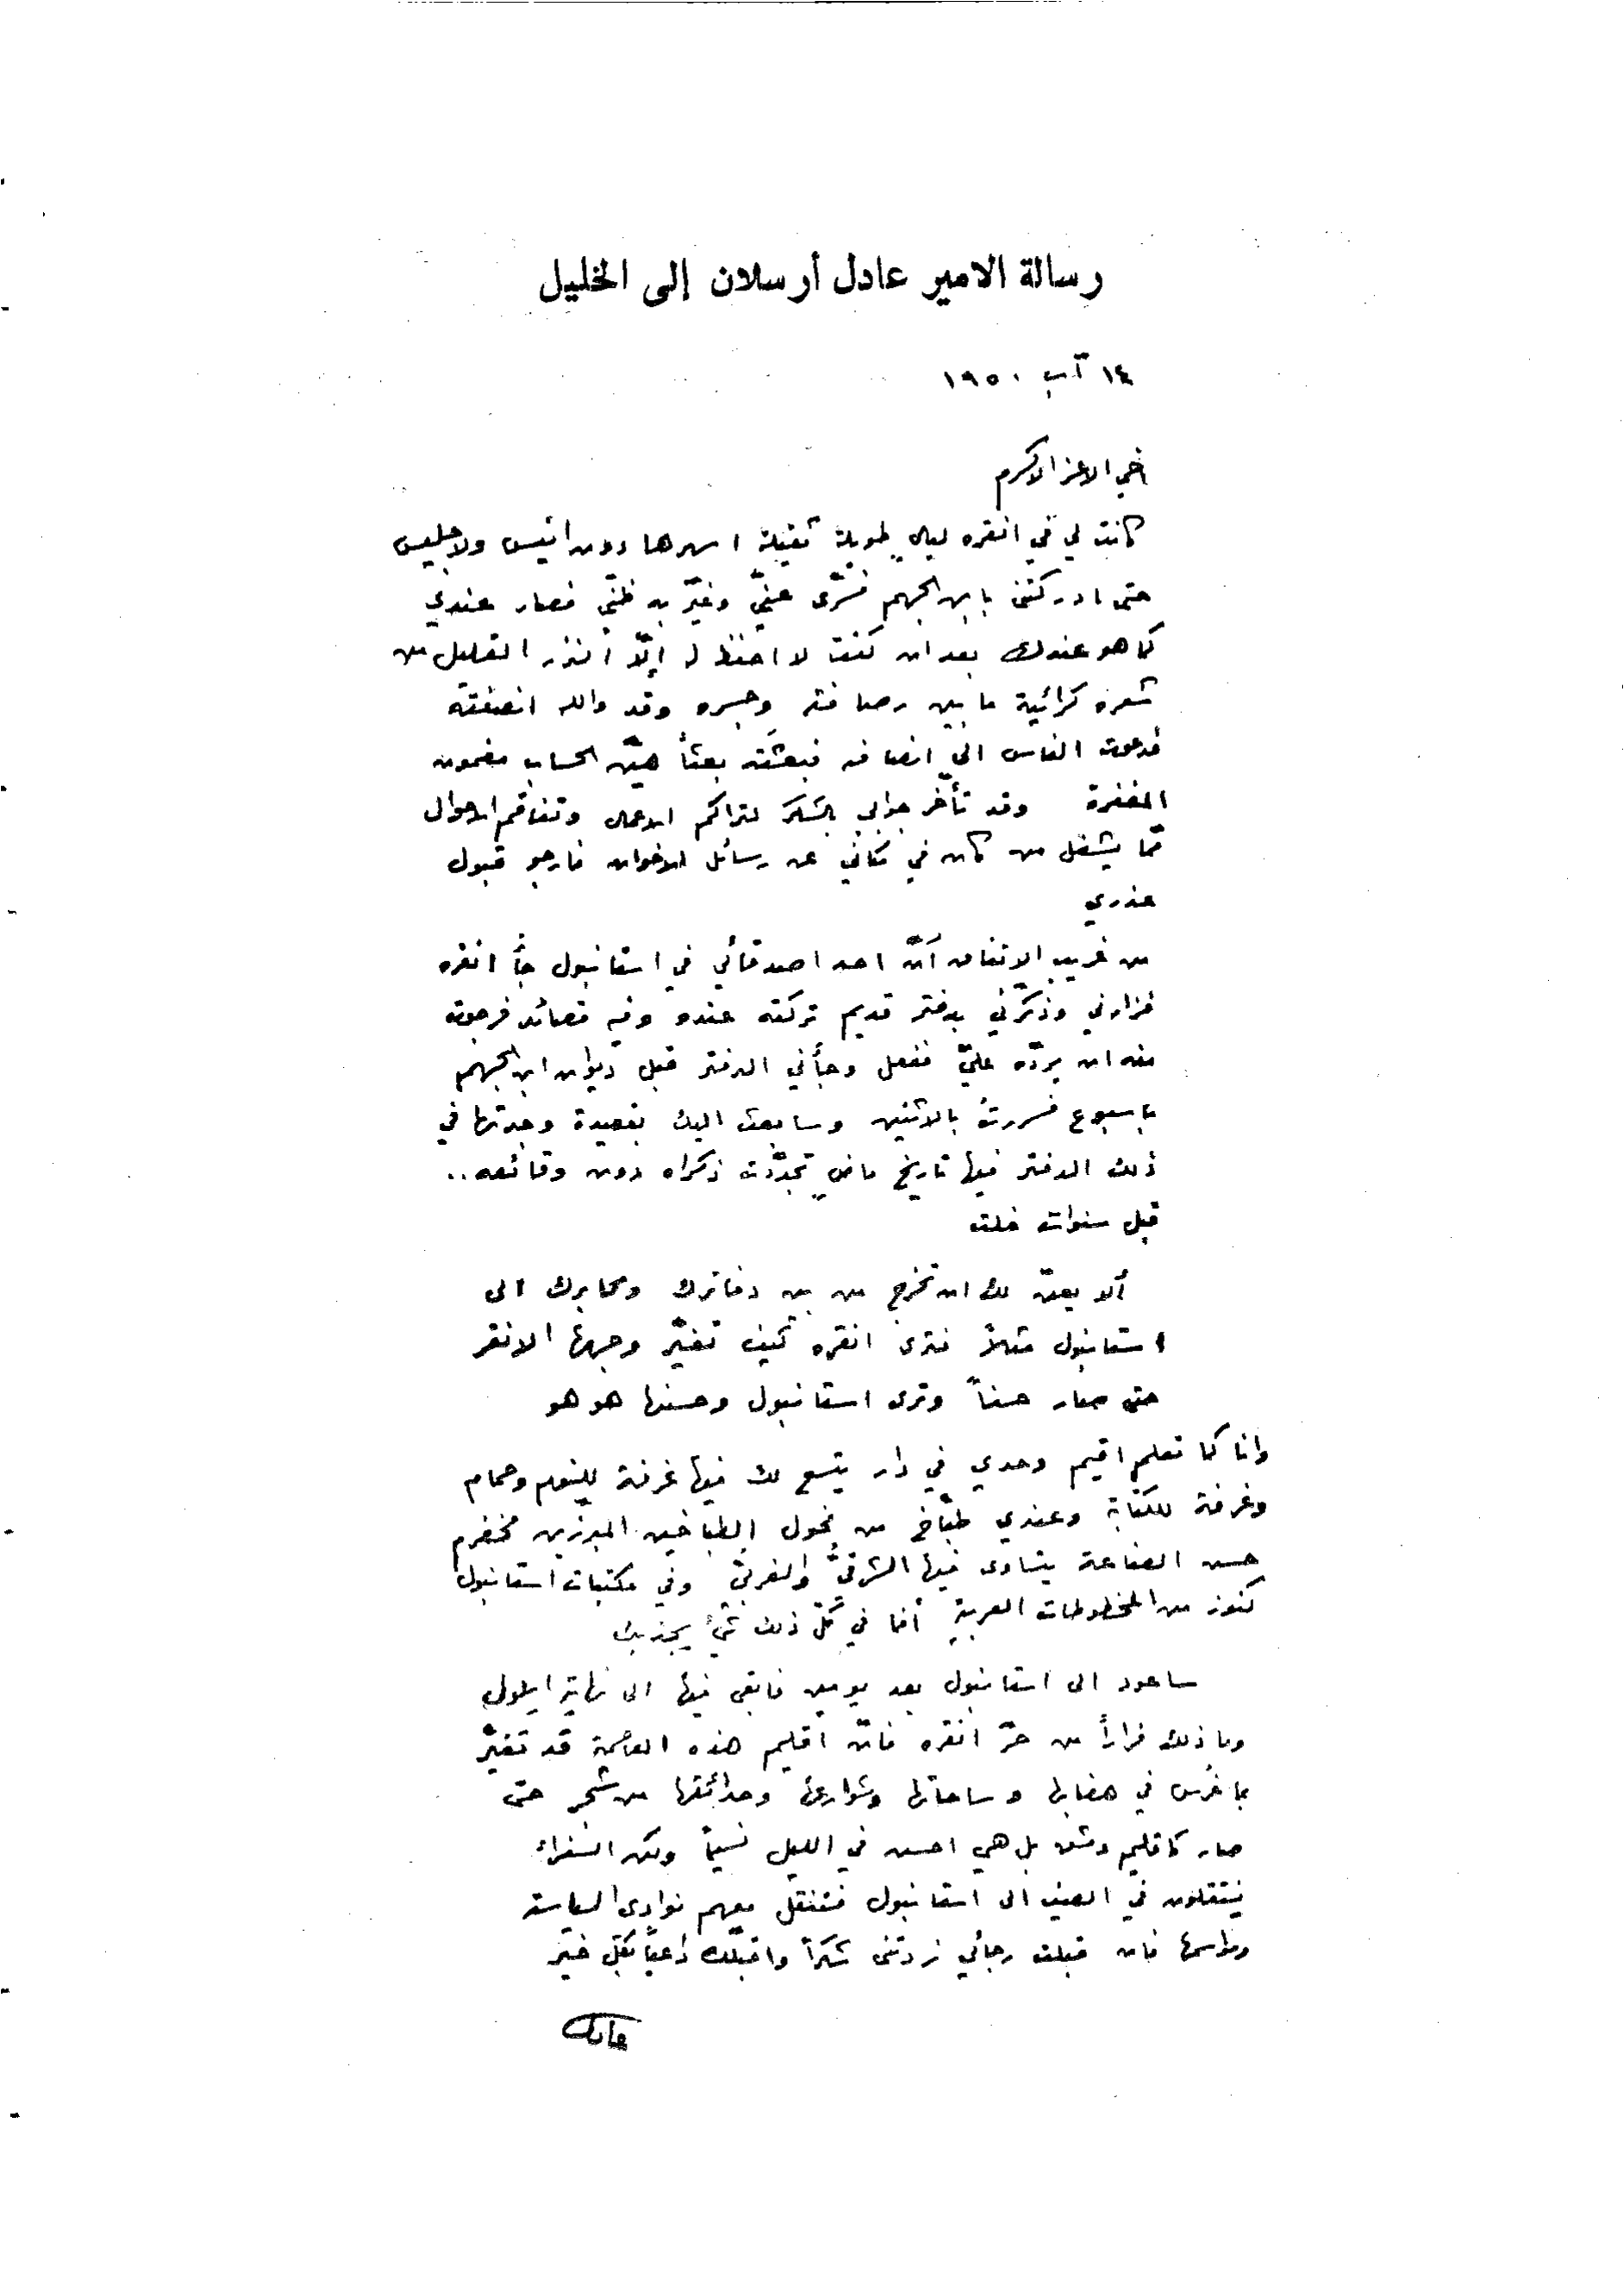 رسالة الامير عادل أرسلان إلى الخليل
١٤ آب ١٩٥٠
أخي الاعز الاكرم
كانت لي في انقره ليالٍ طويلة ثقيلة اسهرها دون انيس ولا جليس
حتى ادركتني بابن الجهم فسرّى عنّي وغيّر به ظنّي فصار عندي
كما هو عندك بعد ان كنت لا احفظ له إلّا النزر القليل من
شعره كرائية ما بين رصافته وجسره وقد والله انصفته
فدعوت الناس الى انصافه فبعثته بعثاً هيّن الحساب مضمون
المغفرة وقد تأخّر جوابي بالشكر لتراكم الاعمال وتفاقم الاحوال
ممّا يشغل من كان في مكاني عن رسائل الاخوان فارجو قبول
عذري
من غريب الاتفاق أنّ احد اصدقائي في استانبول جأ انقره
فزارني وذكّرني بدفتر قديم تركته عنده وفيه قصائد فرجوت
منه ان يردّه عليّ ففعل وجأني الدفتر قبل ديوان ابن الجهم
باسبوع فسررت بالاثنين وسابعث اليك بقصيدة وجدتها في
ذلك الدفتر فيها تاريخ ماضٍ تجدّدت ذكراه دون وقائعه..
قبل سنوات خلت
ألا يعنّ لك ان تخرج من بين دفاترك ومحابرك الى
استانبول مثلاً فترى انقره كيف تغيّر وجهها الانقر
حتى صار حسناً وترى استانبول وحسنها هو هو
وانا كما تعلم اقيم وحدي في دار يتسع لك فيها غرفة للنوم وحمام
وغرفة للكتابة وعندي طبّاخ من فحول الطباخين المبرّزين مخضرم
حسن الصناعة يتساوى فيها الشرقيّ والغربيّ وفي مكتبات استانبول
كنوز من المخطوطات العربية أفما في كلّ ذلك شئ يجذبك
ساعود الى استانبول بعد يومين فابقى فيها الى نهاية ايلول
وما ذلك فراراً من حرّ انقره فانّ اقليم هذه العاصمة قد تغيّر
بما غُرس في هضابها وساحاتها وشوارعها وحدائقها من شجر حتى
صار كاقليم دمشق بل هي احسن في الليل نسيماً ولكن السفراء
ينتقلون في الصيف الى استانبول فتنتقل معهم نوادى السياسة
ومراسمها فان قبلت رجائي زدتني شكراً واقبّلك داعياً بكلّ خير
عادل